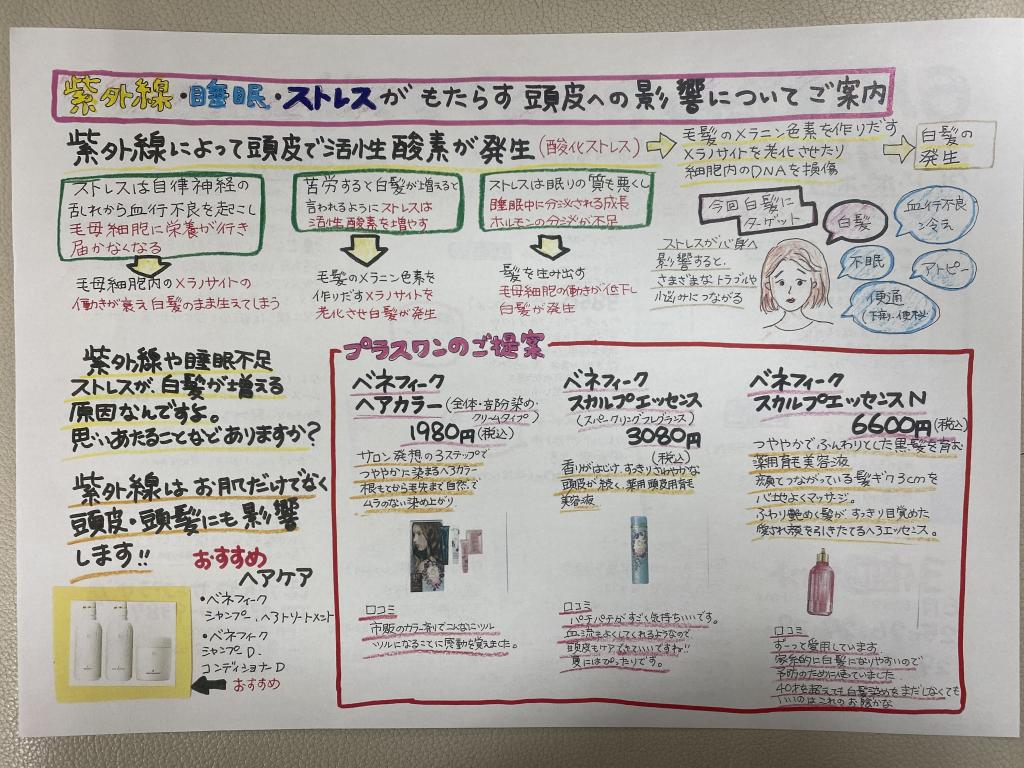 紫外線・睡眠・ストレスがもたらす頭皮への影響についてご案内
紫外線によって頭皮で活性酸素が発生(酸化ストレス)
毛髪のメラニン色素を作りだす
メラノサイトを老化させたり
細胞内のDNAを損傷
白髪の
発生
ストレスは自律神経の
乱れから血行不良を起こし
毛母細胞に栄養が行き
届かなくなる
毛母細胞内のメラノサイトの
働きが衰え白髪のまま生えてしまう
苦労すると白髪が増えると
言われるようにストレスは
活性酸素を増やす
毛髪のメラニン色素を
作りだすメラノサイトを
老化させ白髪が発生
ストレスは眠りの質も悪くし
睡眠中に分泌される成長
ホルモンの分泌が不足
髪を生み出す
毛母細胞の働きが低下し
白髪が発生
今回白髪に
ターゲット
ストレスが心身へ
影響すると、
さまざまなトラブルや
悩みにつながる
白髪
血行不良・
冷え
不眠
アトピー
便通
(下痢・便秘)
紫外線や睡眠不足
ストレスが、白髪が増える
原因なんですよ。
思いあたることなどありますか?
紫外線はお肌だけでなく
頭皮・頭髪にも影響
します!!
おすすめ
ヘアケア
・ベネフィーク
シャンプー、ヘアトリートメント
・ベネフィーク
シャンプーD.
コンディショナーD
おすすめ
プラスワンのご提案
ベネフィーク
ヘアカラー(全体・部分染め・
クリームタイプ)
1980円(税込)
サロン発想の3ステップで
つややかに染まるヘアカラー
根もとから毛先まで自然で
ムラのない染め上がり
口コミ
市販のカラー剤でこんなにツル
ツルになることに感動を覚えました。
ベネフィーク
スカルプエッセンス
(スパークリングフレグランス)
3080円
(税込)
香りがはじけ、すっきりさわやかな
頭皮が続く、薬用頭皮用育毛
美容液
口コミ
パチパチがすごく気持ちいいです。
血流もよくしてくれるようなので
頭皮もケアできていいですね!!
夏にはぴったりです。
ベネフィーク
スカルプエッセンスN
6600円(税込)
つややかでふんわりとした黒髪を育む
薬用育毛美容液
顔とつながっている髪ギワ3cmを
心地よくマッサージ。
ふわり艶めく髪が すっきり目覚めた
愛され顔を引きたてるヘアエッセンス。
口コミ
ずーっと愛用しています。
家系的に白髪になりやすいので
予防のために使っていました
40才を超えても白髪染めをまだしなくても
いいのはこれのお陰かな